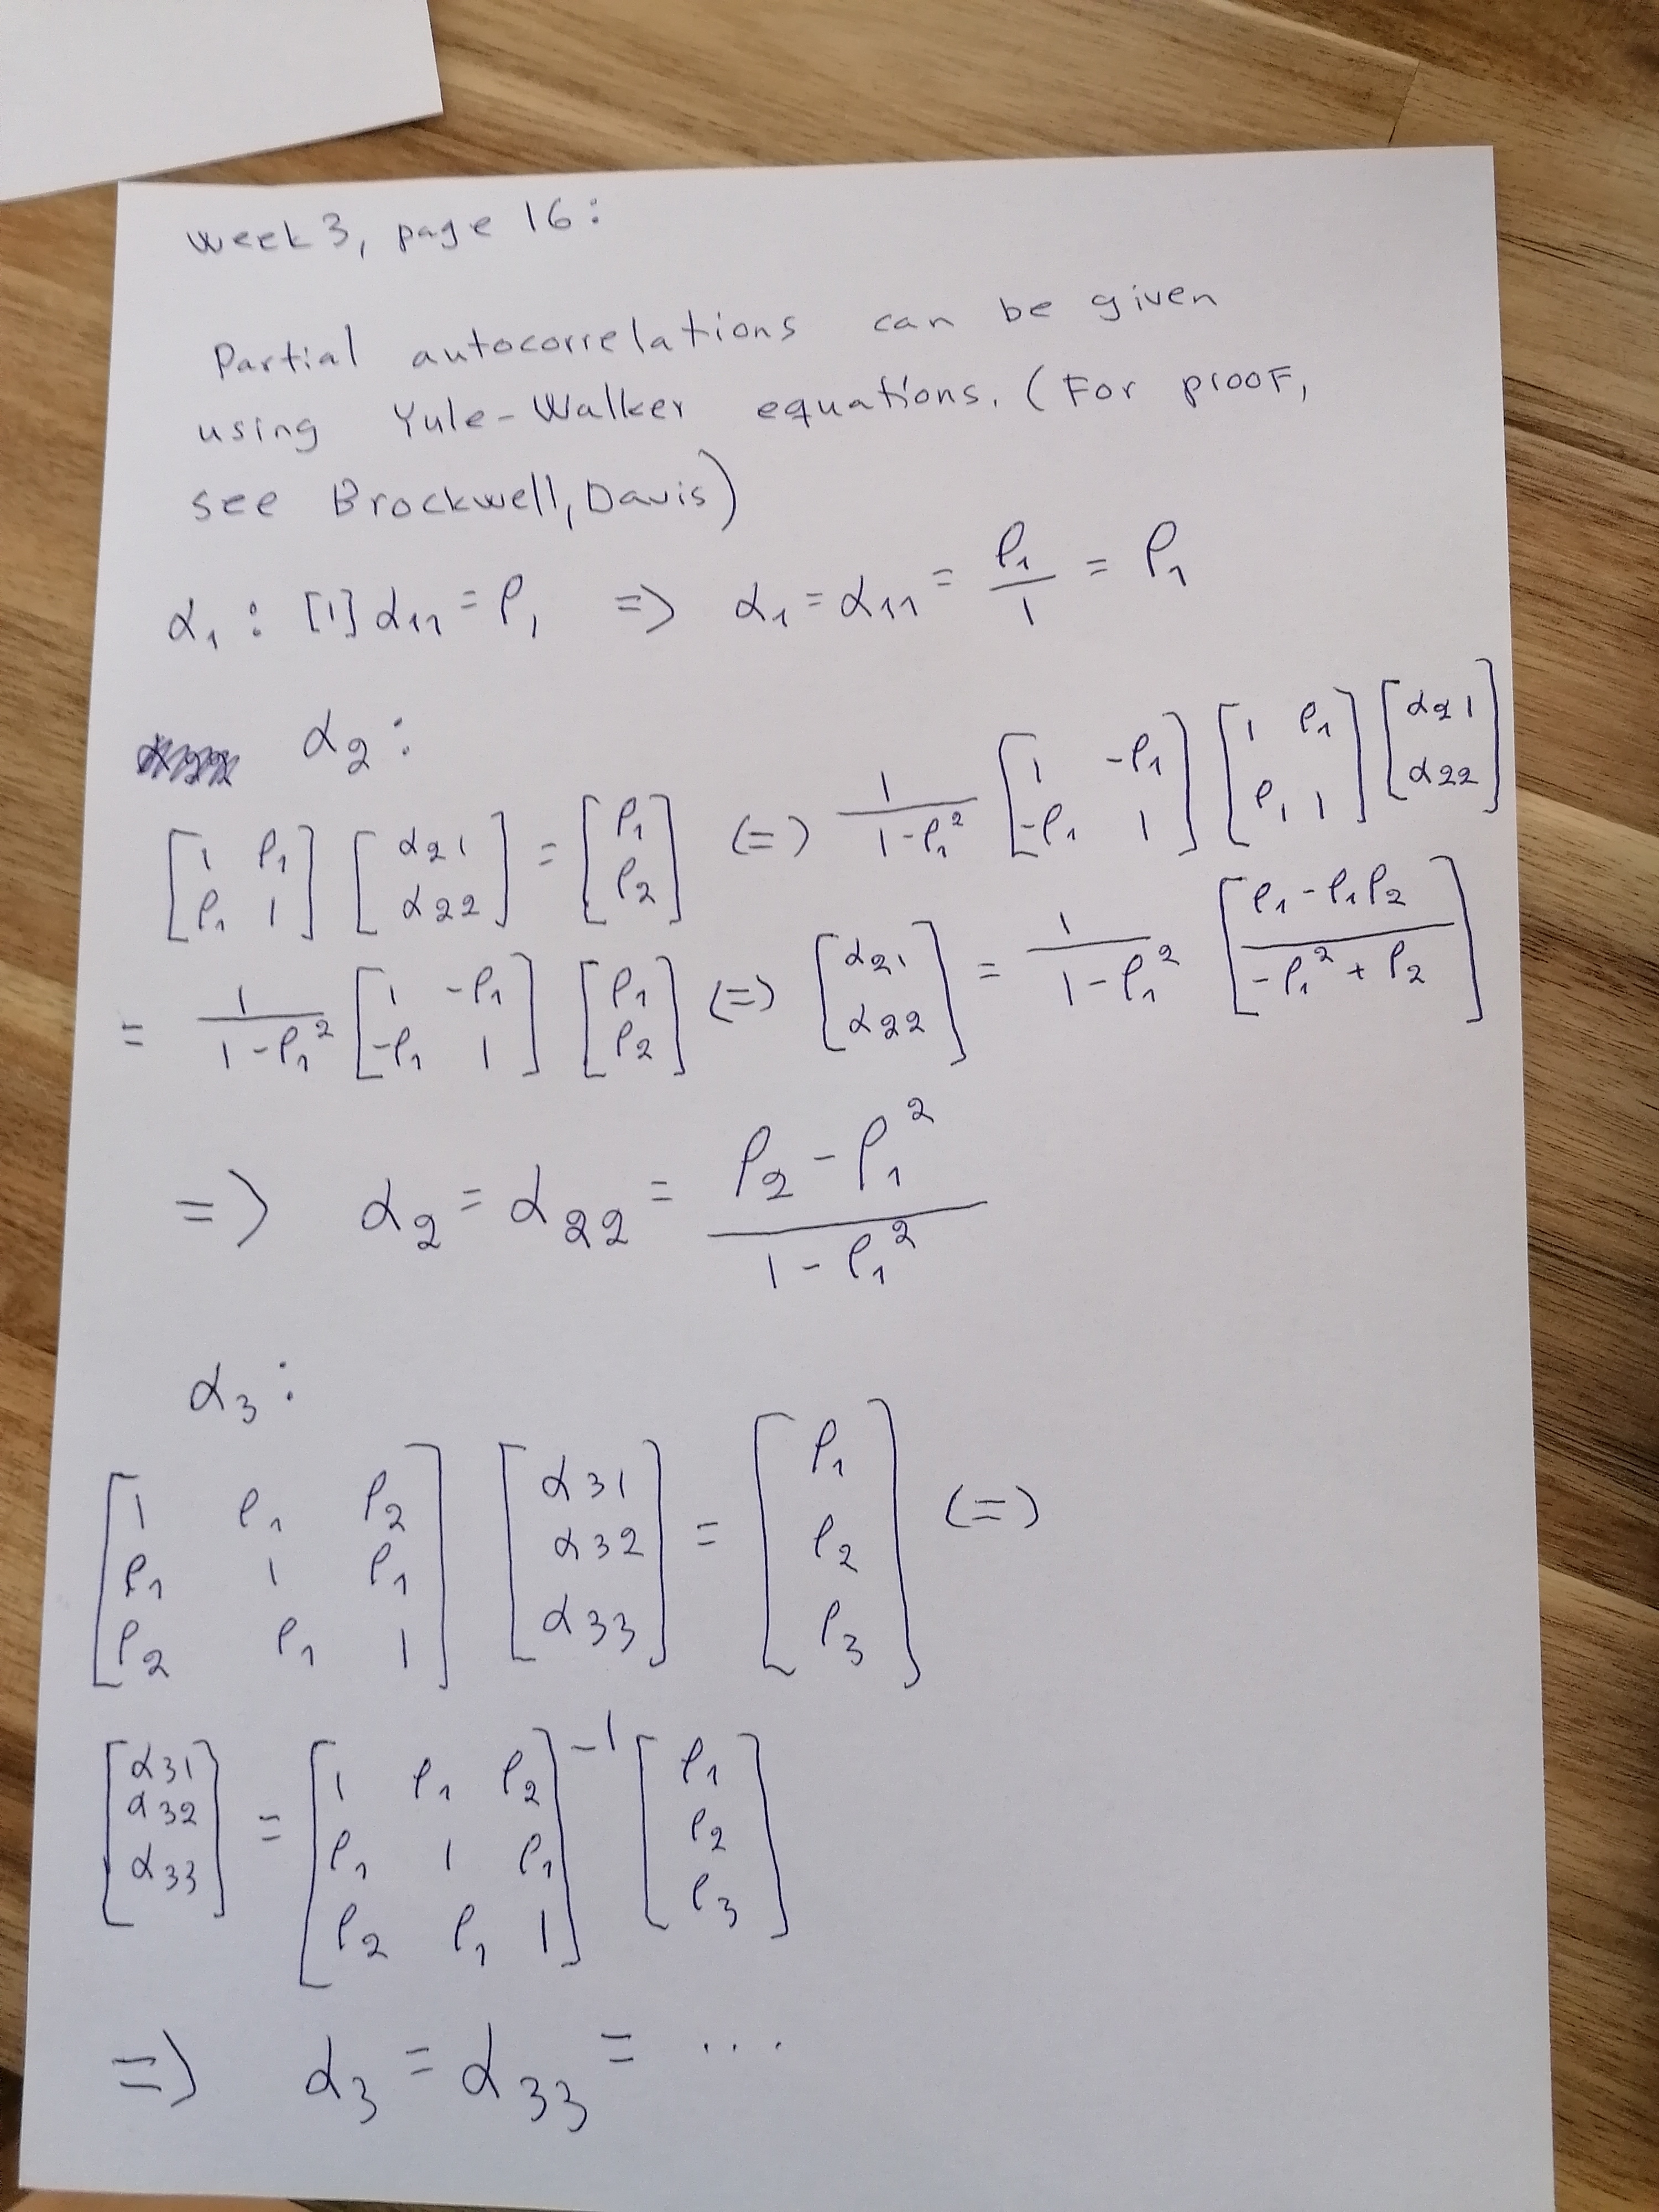 week 3, page 16:
Partial autocorrelations can be given
using Yule-Walker equations. (For proof,
see Brockwell, Davis)
α₁ : [1] α₁₁ = ρ₁ => α₁ = α₁₁ = ρ₁/1 = ρ₁
α₂ :
[1 ρ₁; ρ₁ 1] [α₂₁; α₂₂] = [ρ₁; ρ₂] (=) 1/(1-ρ₁²) [1 -ρ₁; -ρ₁ 1] [1 ρ₁; ρ₁ 1] [α₂₁; α₂₂]
= 1/(1-ρ₁²) [1 -ρ₁; -ρ₁ 1] [ρ₁; ρ₂] (=) [α₂₁; α₂₂] = 1/(1-ρ₁²) [ρ₁-ρ₁ρ₂; -ρ₁²+ρ₂]
=> α₂ = α₂₂ = (ρ₂-ρ₁²)/(1-ρ₁²)
α₃ :
[1 ρ₁ ρ₂; ρ₁ 1 ρ₁; ρ₂ ρ₁ 1] [α₃₁; α₃₂; α₃₃] = [ρ₁; ρ₂; ρ₃] (=)
[α₃₁; α₃₂; α₃₃] = [1 ρ₁ ρ₂; ρ₁ 1 ρ₁; ρ₂ ρ₁ 1]⁻¹ [ρ₁; ρ₂; ρ₃]
=> α₃ = α₃₃ = ...